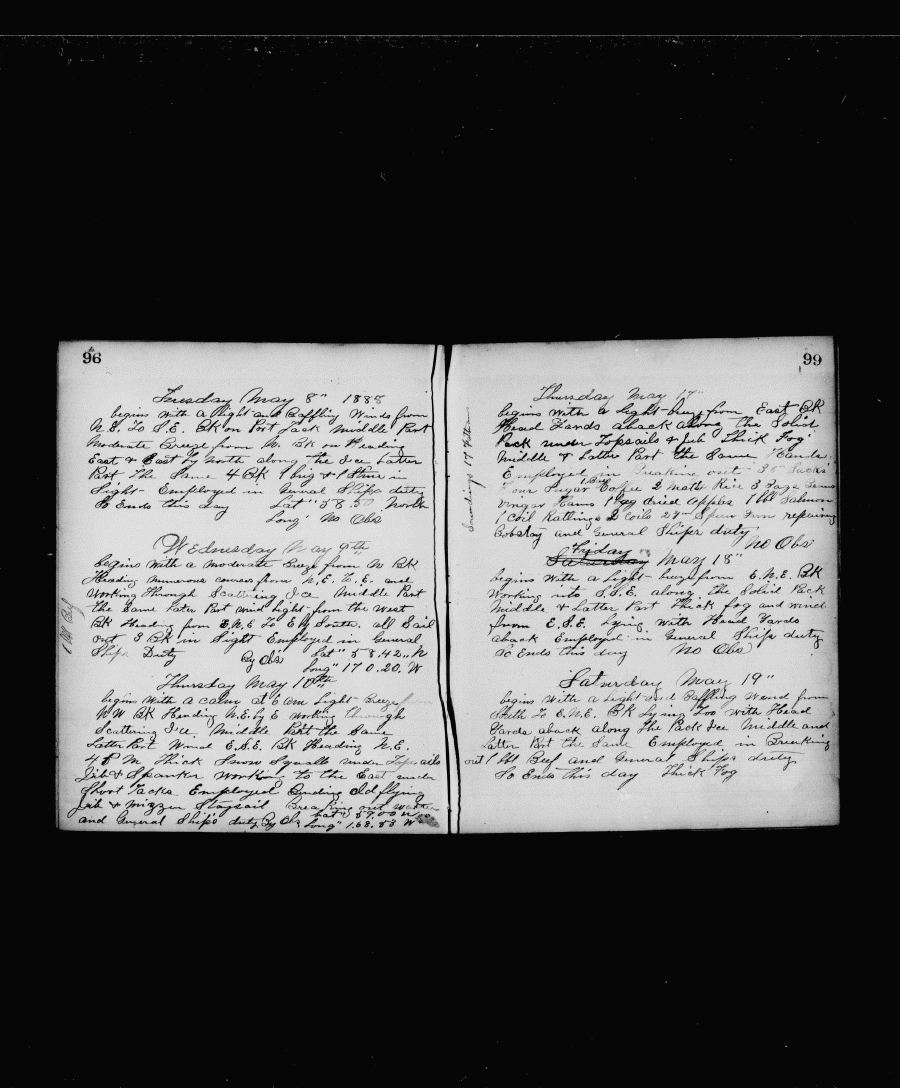 96
Tuesday May 8" 1888
begins with a Light and Baffling Winds from
N.E. To S.E. BK on Port Tack Middle Part
Moderate Breeze from N. BK on Heading
East & East by North along the Ice Latter
Part The Same 4 BK 1 big & 1 Stmr in
Sight - Employed in General Ships duty
So Ends this day Lat" 58.57 North
Long" No Obs
Wednesday May 9th
begins with a moderate Breeze from N BK
Heading numerous courses from N.E. To E. and
Working Through Scattering Ice Middle Part
the Same Later Part wind light from the West
BK Heading from E.N.E To E by South. all Sail
out 3 BK in Sight Employed in General
Ships Duty By Obs Lat" 58.42" N
Long" 170.20. W
1 Bbl Beef
Thursday May 10th
begins With a calm at 6 am Light Breeze from
NW BK Heading N.E. by E working through
Scattering Ice Middle Part the Same
Latter Part Wind E.S.E. BK Heading N.E.
4 P M Thick Snow Squalls under Topsails
Jib & Spanker Working To the East under
Short Tacks Employed Bending Old flying
Jib & Mizzen Staysail Breaking out Water
and General Ships duty By Obs Lat" 59.00 N
Long" 168.58 W
99
Soundings 17 Fathom
Thursday May 17"
begins with a Light breeze from East BK
Head Yards aback along the Solid
Pack under Topsails & Jib Thick Fog
Middle & Latter Part the Same Hands
Employed in Breaking out 35 Sacks
Flour Sugar 1 Bag Coffee 2 Matts Rice 3
vingar Hams 1 Keg dried Apples 1 Bbl Salmon
1 Coil Ratlings 2 Coils Spun Yarn repairing
Bobstay and General Ships duty
No Obs
Saturday Friday May 18"
begins with a Light breeze from E.N.E. BK
Working into S.S.E. along the Solid Pack
Middle & Latter Part Thick fog and wind
from E.S.E. Lying with Head Yards
aback Employed in General Ships duty
So Ends this day No Obs
Saturday May 19"
begins With a Light and Baffling Wind from
South To E.N.E. BK Lying Too with Head
Yards aback along the Pack Ice Middle and
Latter Part the Same Employed in Breaking
out 1 Bbl Beef and General Ships duty
So Ends this day Thick Fog